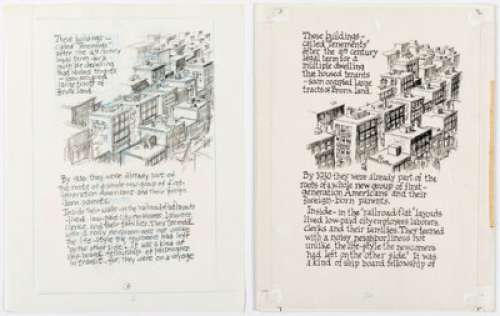 These buildings –
called "Tenements"
after the 19th century
legal term for a
multiple dwelling
that housed tenants
– soon occupied
large tracts of
Bronx land.
By 1930 they were already part of
the roots of a whole new group of first-
generation Americans and their foreign-
born parents.
Inside – in the railroad flat layouts
lived low-paid city employees, laborers,
clerks, and their families. They teemed
with a noisy
the life-style the newcomers had left
on the other side. It was a kind of
ship board fellowship of
in transit for they were on a voyage
These buildings –
called "Tenements"
after the 19th century
legal term for a
multiple dwelling
that housed tenants
– soon occupied large
tracts of Bronx land.
By 1930 they were already part of the
roots of a whole new group of first-
generation Americans and their
foreign-born parents.
Inside – in the "railroad flat" layouts
lived low-paid city employees, laborers,
clerks and their families. They teemed
with a noisy neighborliness not
unlike the life-style the newcomers
had left on the "other side." It was
a kind of ship board fellowship of